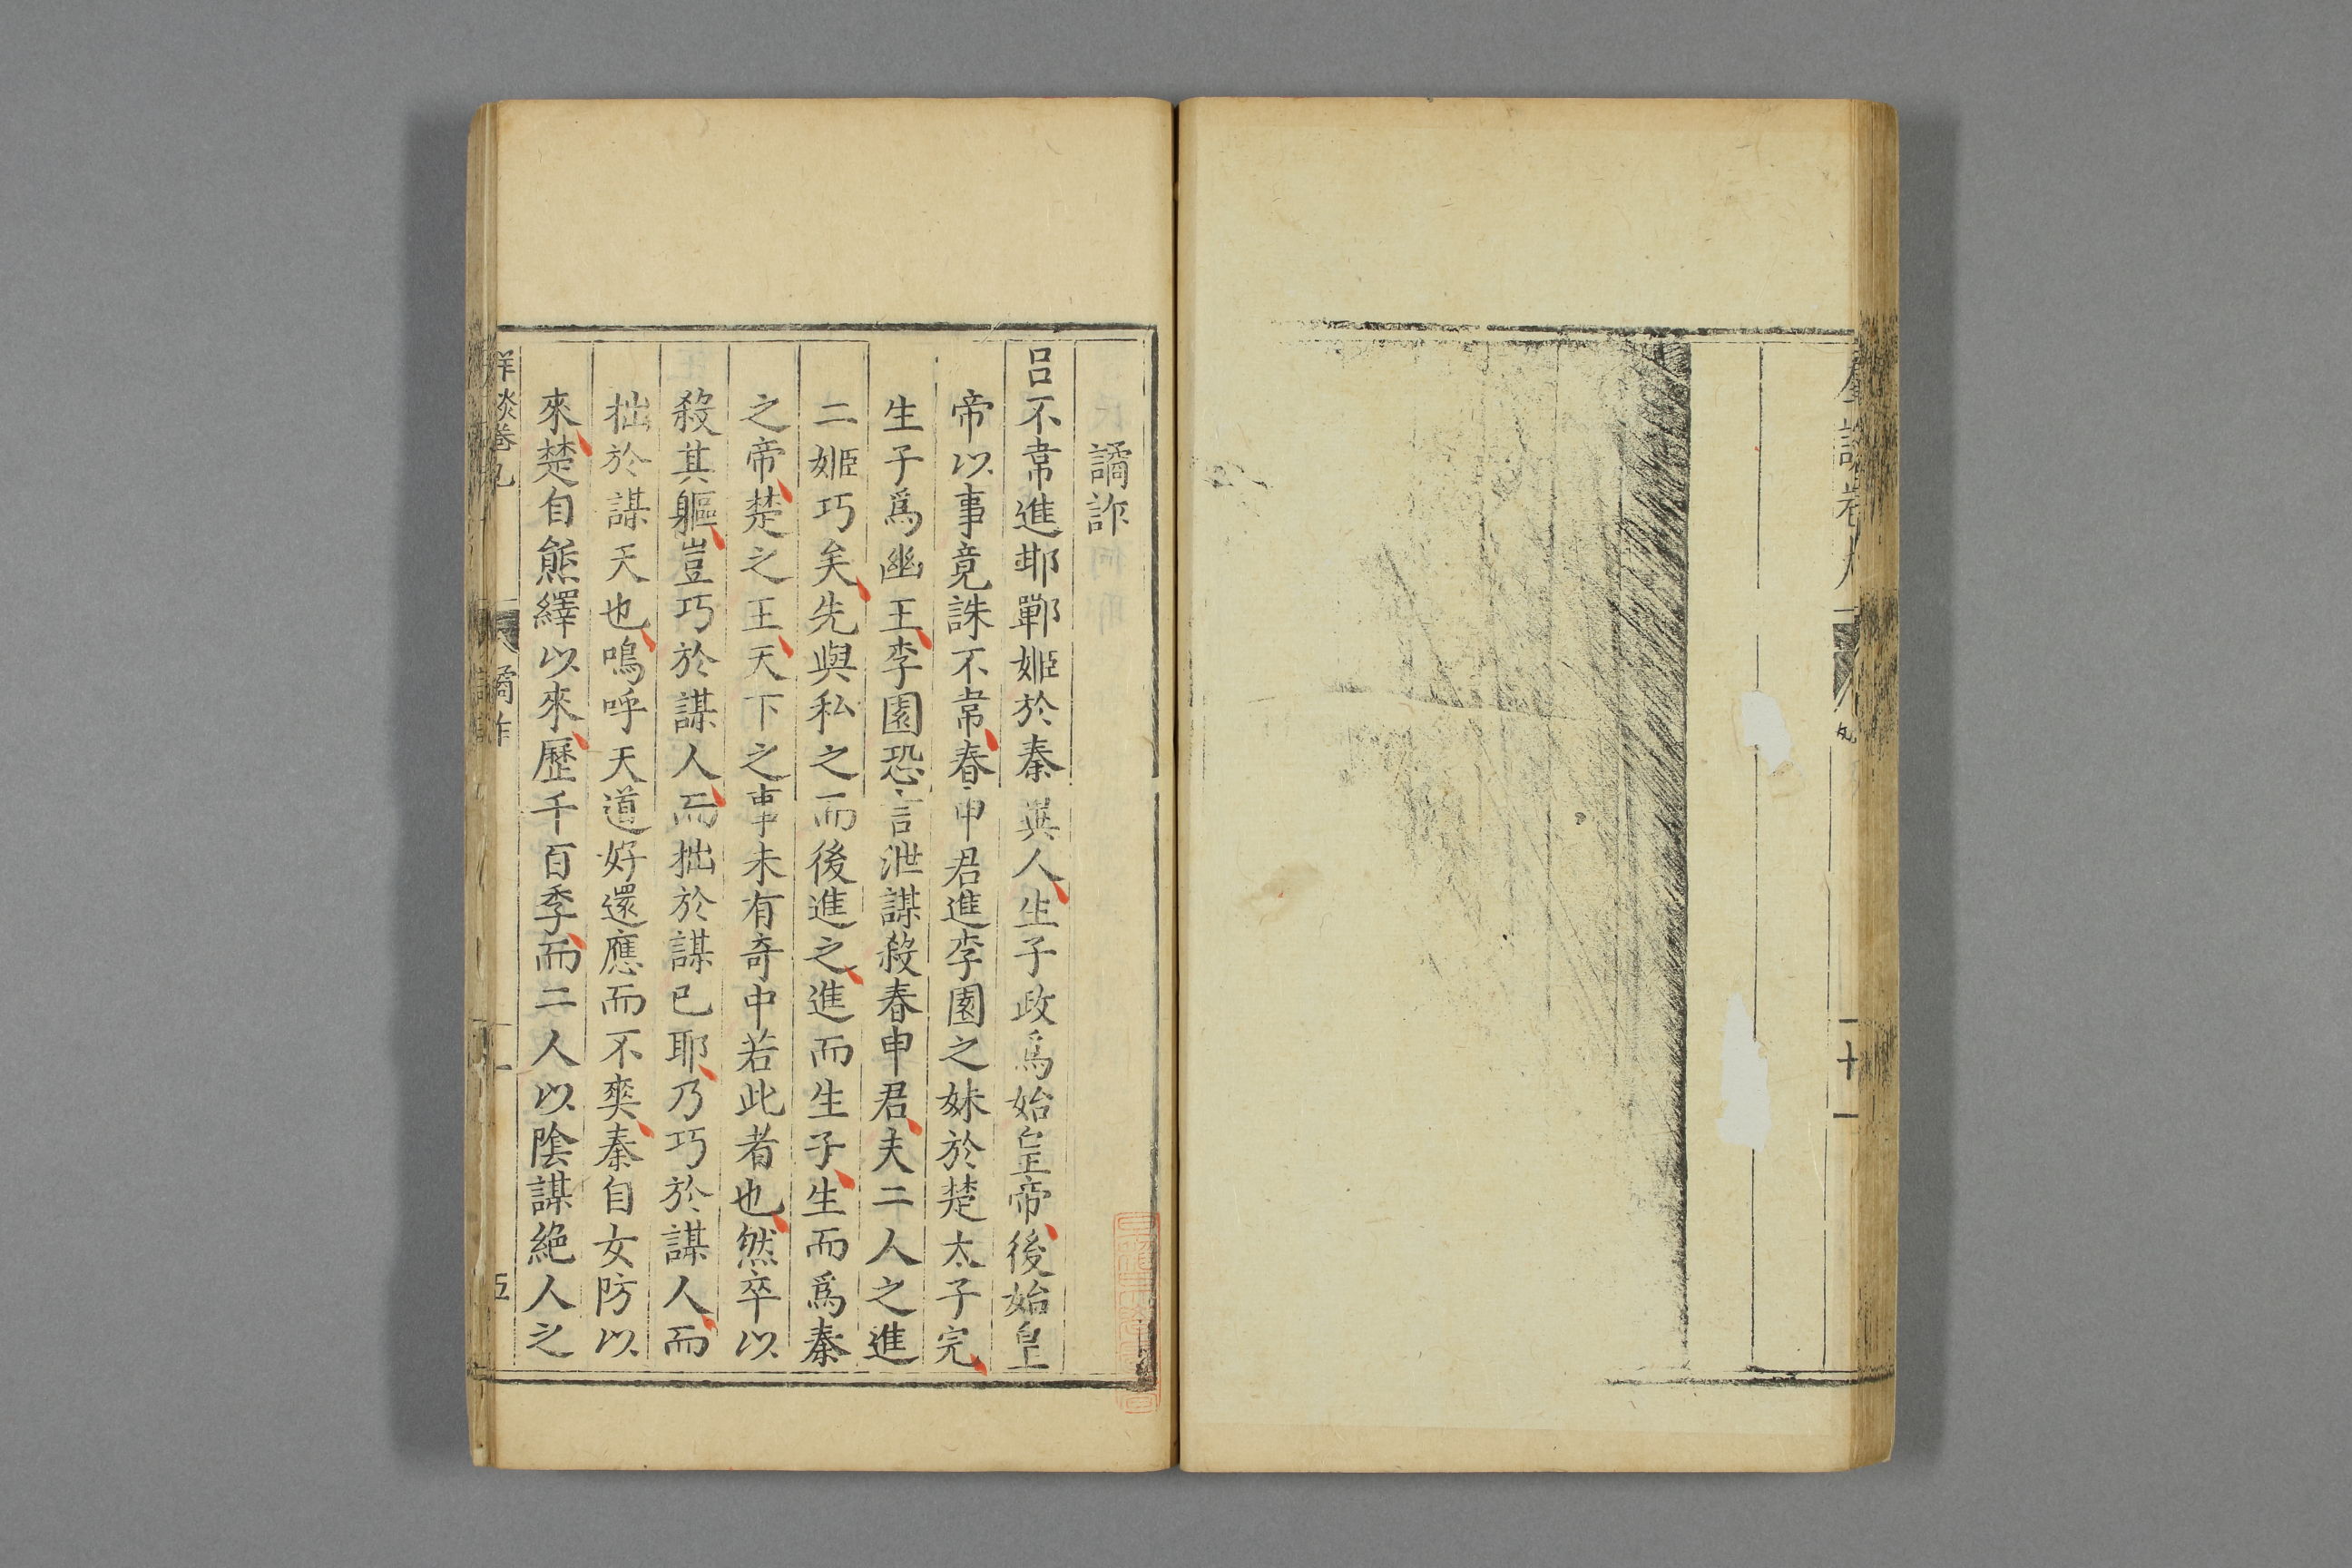 十一
譎詐
呂不韋進邯鄲姬於秦異人生子政爲始皇帝後始皇
帝以事竟誅不韋春申君進李園之妹於楚太子完
生子爲幽王李園恐言泄謀殺春申君夫二人之進
二姬巧矣先與私之而後進之進而生子生而爲秦
之帝楚之王天下之事未有奇中若此者也然卒以
殺其軀豈巧於謀人而拙於謀已耶乃巧於謀人而
拙於謀天也嗚呼天道好還應而不爽秦自女防以
來楚自熊繹以來歷千百季而二人以陰謀絕人之
羣談卷九 譎詐 一